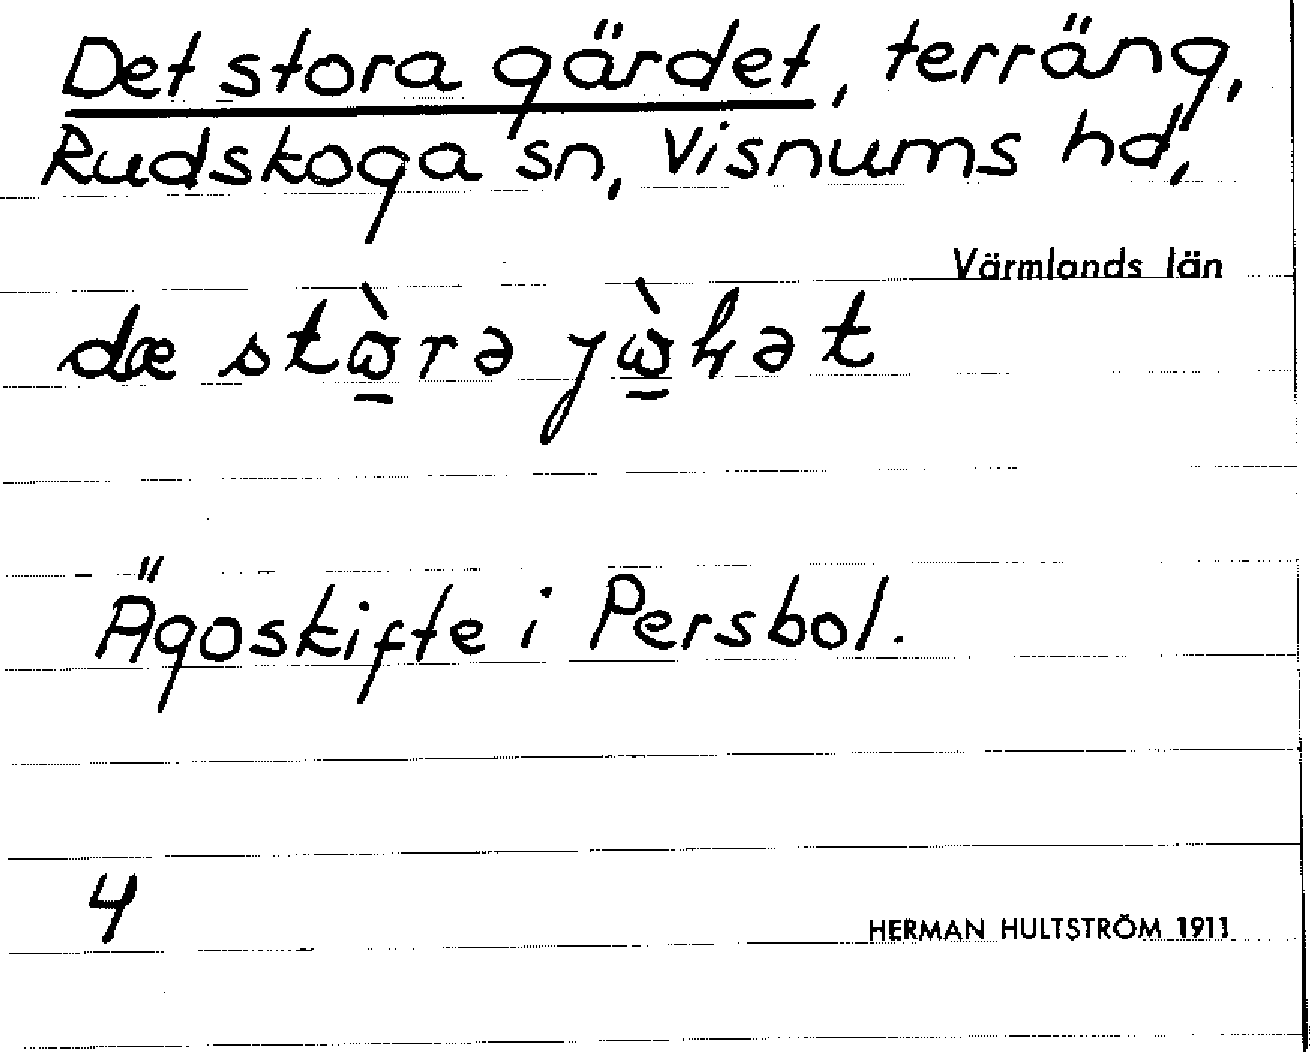 Det stora gärdet, terräng,
Rudskoga sn, Visnums hd,
Värmlands län
dæ stɷ̱̀rə
Ägoskifte i Persbol.
4
HERMAN HULTSTRÖM 1911